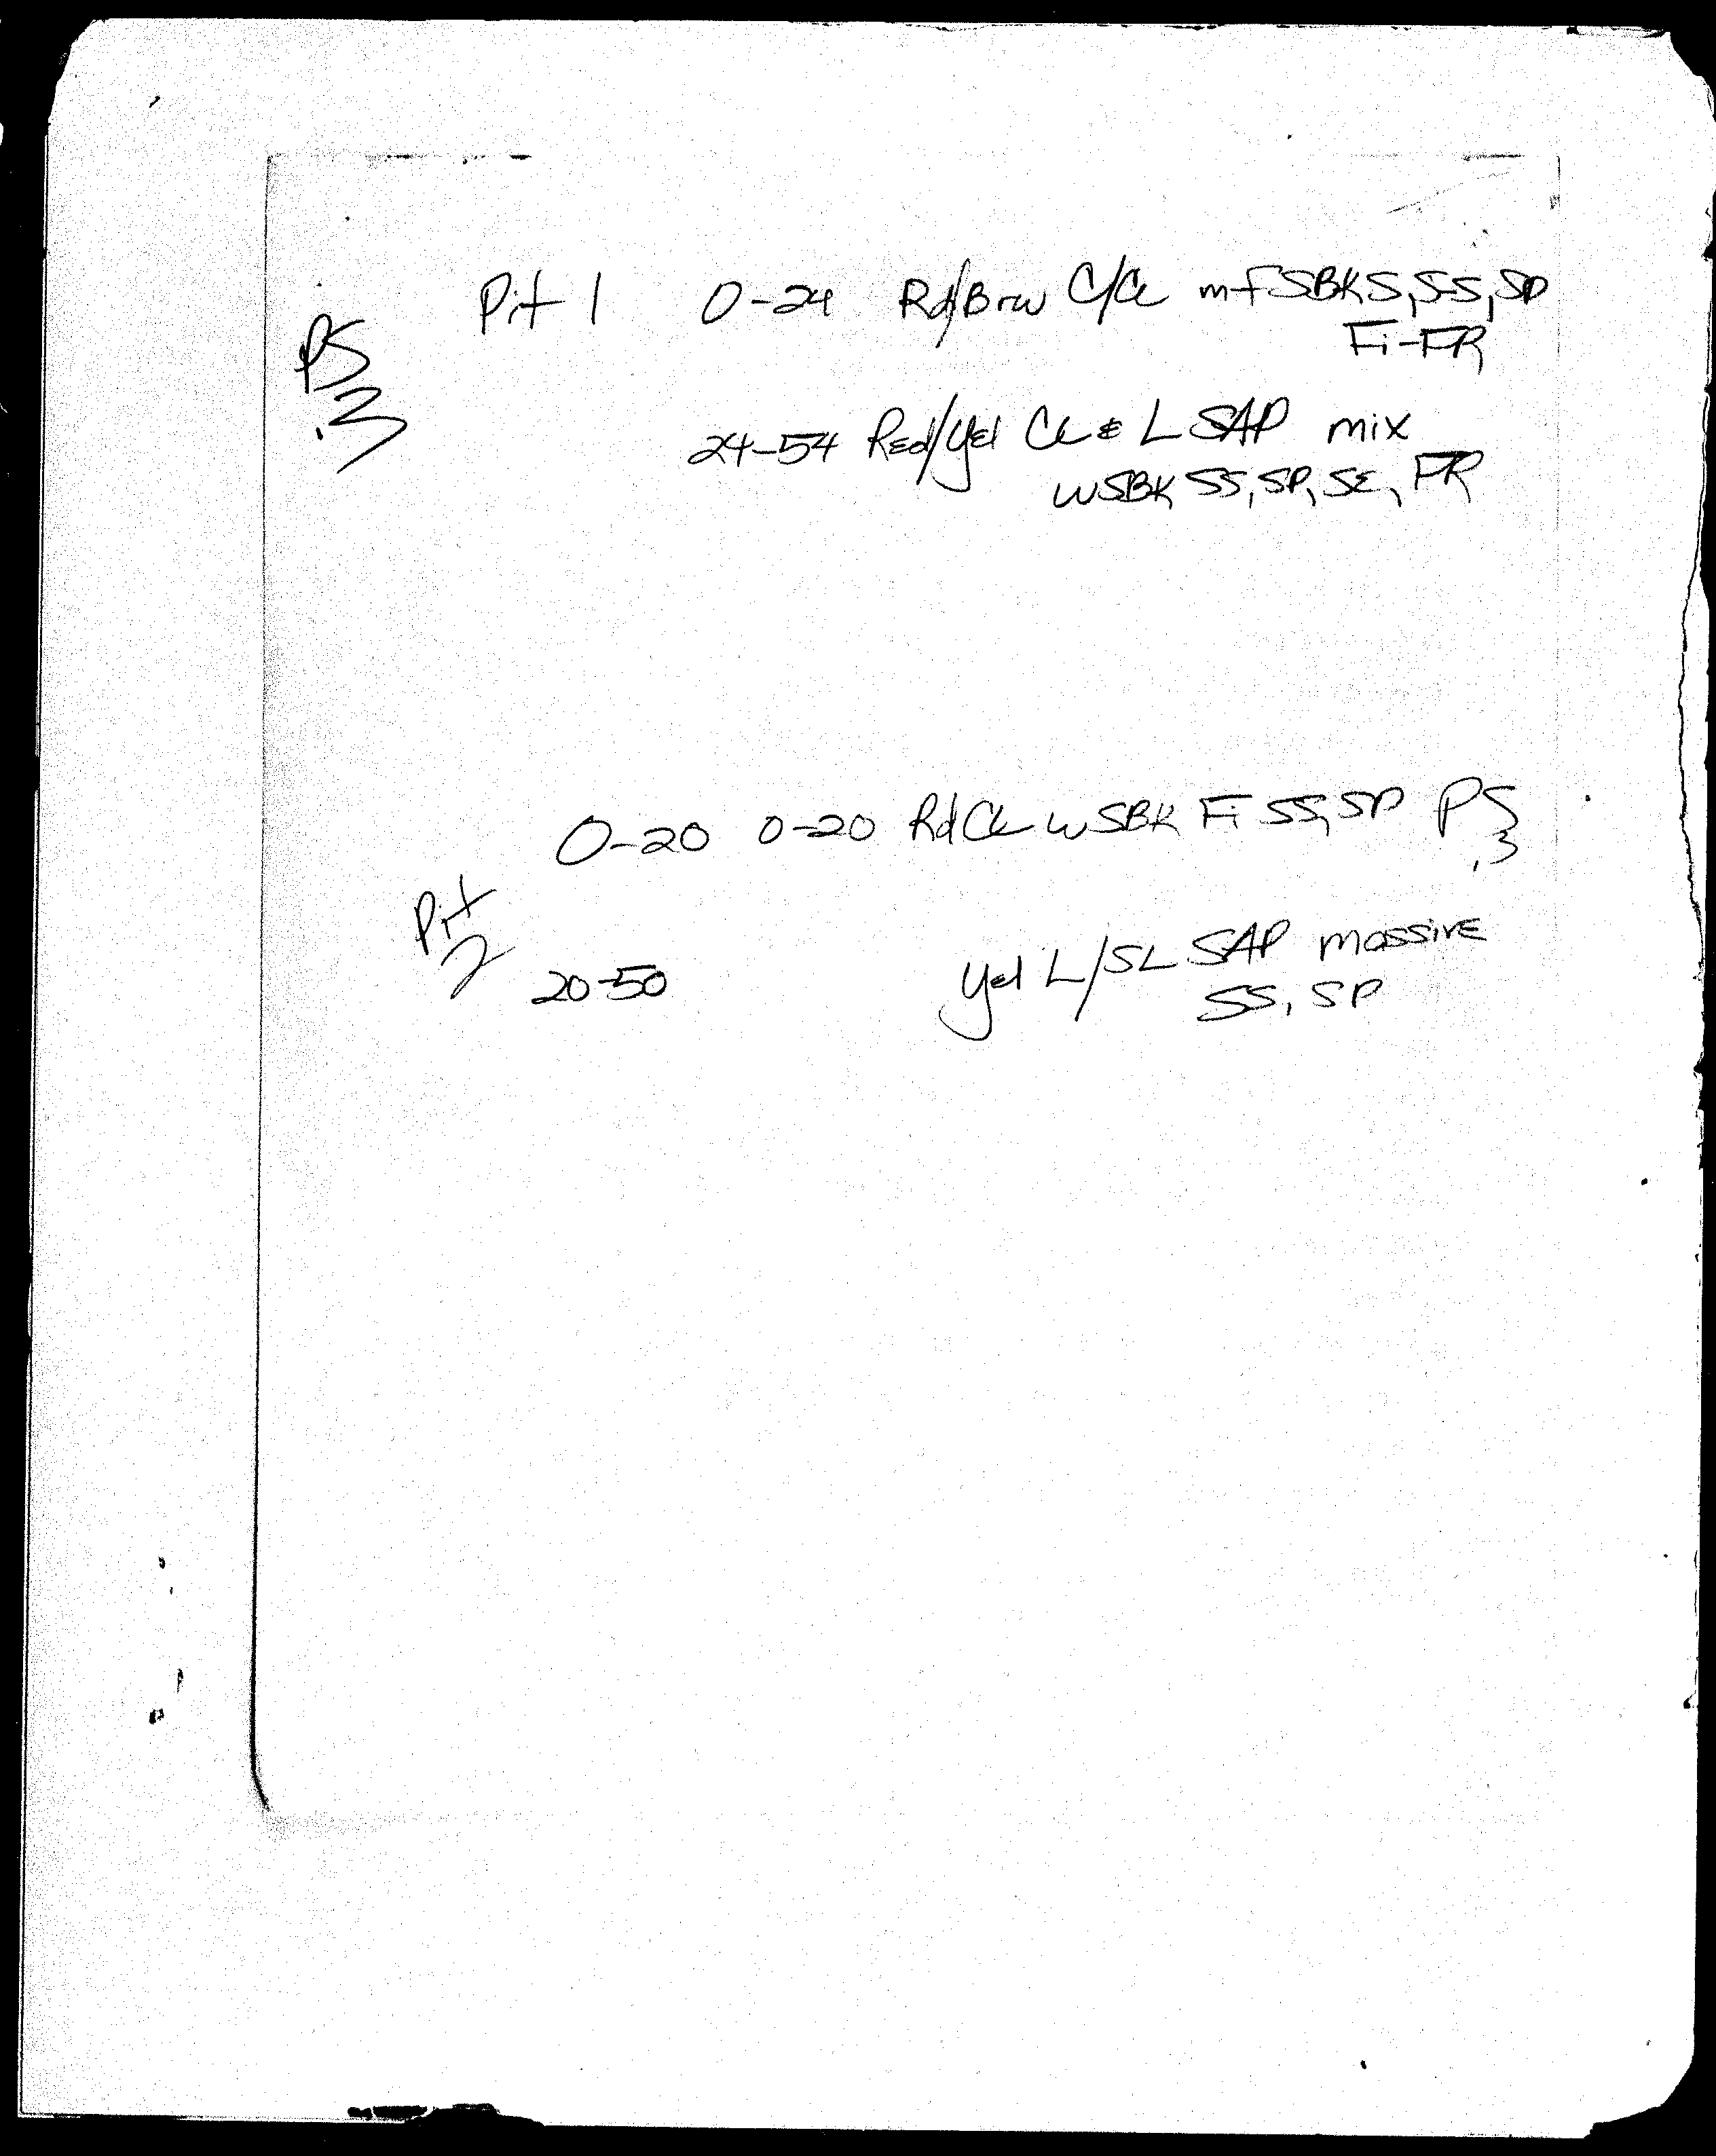 Pit 1 0-24 Rd/Brw C/CL mfSBKS,SS,SP
Fi-FR
PS
.3
24-54 Red/Yel CL & L SAP mix
wSBK SS, SP, SE, FR
0-20 0-20 Rd CL wSBK Fi SS, SP PS
.3
Pit
2
20-50 Yel L/SL SAP massive
SS, SP